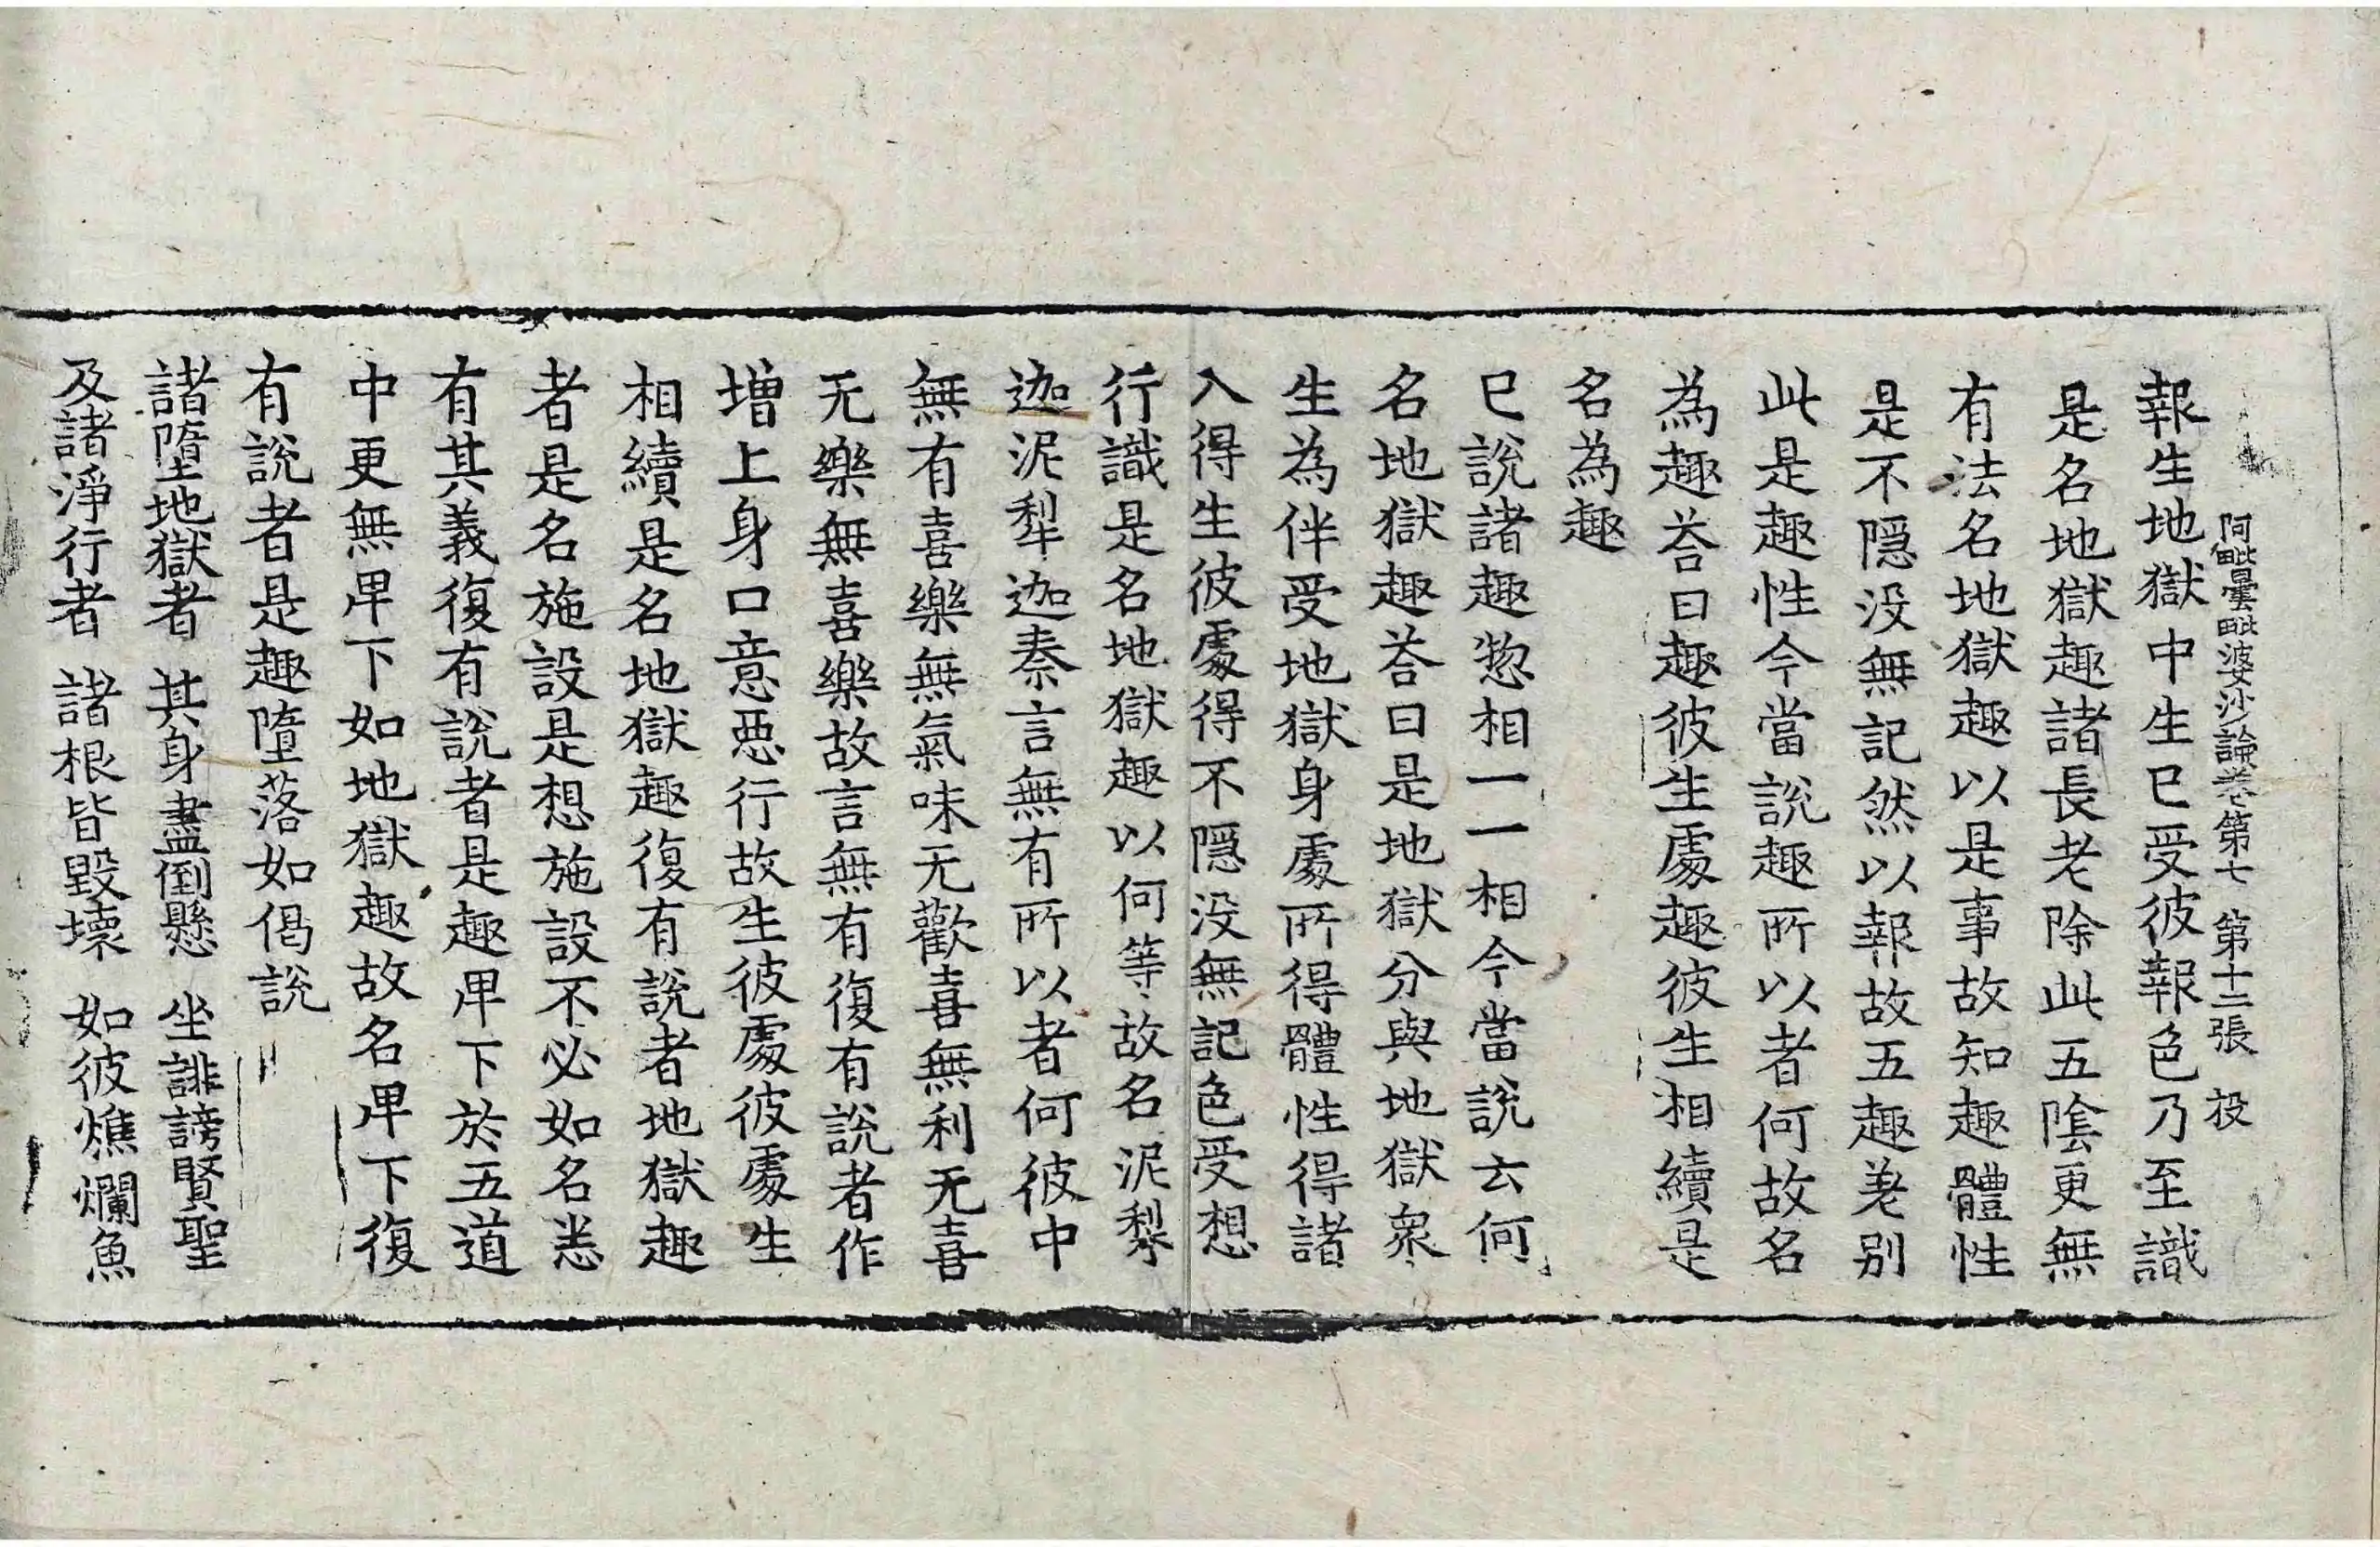 阿毗曇毗婆沙論卷第七 第十二張 投
報生地獄中生已受彼報色乃至識
是名地獄趣諸長老除此五陰更無
有法名地獄趣以是事故知趣體性
是不隱没無記然以報故五趣差别
此是趣性今當說趣所以者何故名
為趣荅曰趣彼生處趣彼生相續是
名為趣
已說諸趣惣相一一相今當說云何
名地獄趣荅曰是地獄分與地獄衆
生為伴受地獄身處所得體性得諸
入得生彼處得不隱没無記色受想
行識是名地獄趣以何等故名泥犁
迦泥犁迦秦言無有所以者何彼中
無有喜樂無氣味无歡喜無利无喜
无樂無喜樂故言無有復有說者作
增上身口意惡行故生彼處彼處生
相續是名地獄趣復有說者地獄趣
者是名施設是想施設不必如名悉
有其義復有說者是趣卑下於五道
中更無卑下如地獄趣故名卑下復
有說者是趣墮落如偈說
諸墮地獄者 其身盡倒懸 坐誹謗賢聖
及諸淨行者 諸根皆毀壞 如彼燋爛魚